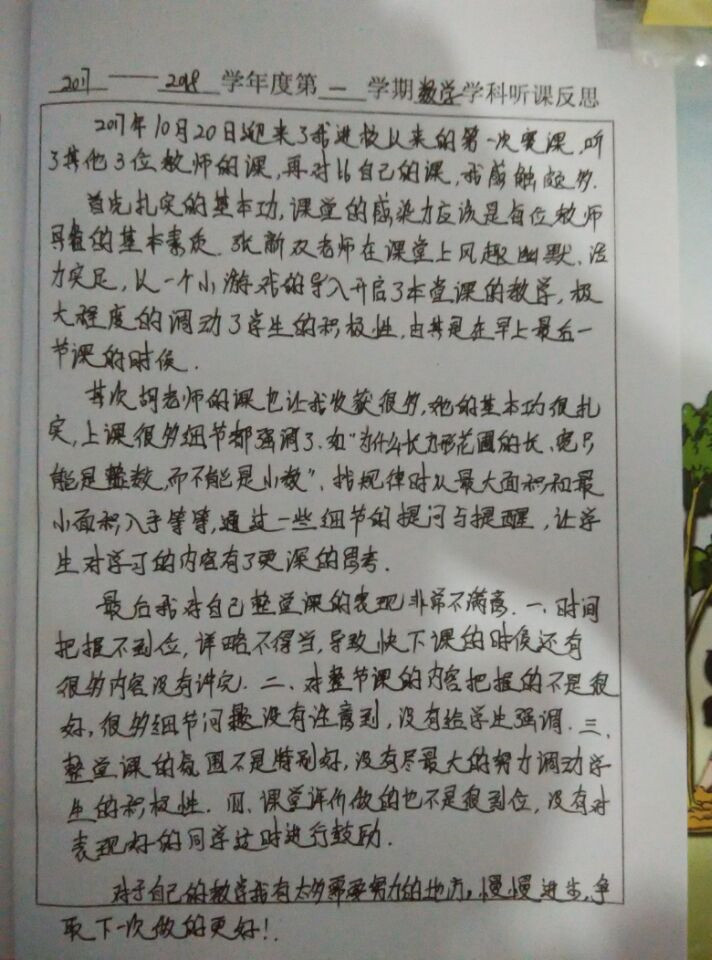 2017 —— 2018 学年度第 一 学期 数学 学科听课反思
2017年10月20日迎来了我进校以来的第一次赛课,听
了其他3位教师的课,再对比自己的课,我感触颇多.
首先扎实的基本功,课堂的感染力应该是每位教师
具备的基本素质.张新双老师在课堂上风趣幽默、活
力实足,以一个小游戏的导入开启了本堂课的教学,极
大程度的调动了学生的积极性,由其是在早上最后一
节课的时候.
其次胡老师的课也让我收获很多,她的基本功很扎
实,上课很多细节都强调了.如"为什么长方形花圃的长、宽只
能是整数,而不能是小数".找规律时从最大面积和最
小面积入手等等,通过一些细节的提问与提醒,让学
生对学习的内容有了更深的思考.
最后我对自己整堂课的表现非常不满意.一.时间
把握不到位,详略不得当,导致快下课的时候还有
很多内容没有讲完.二、对整节课的内容把握的不是很
好,很多细节问题没有注意到,没有给学生强调.三.
整堂课的氛围不是特别好,没有尽最大的努力调动学
生的积极性.四、课堂评价做的也不是很到位,没有对
表现好的同学这时进行鼓励.
对于自己的教学我有太多需要努力的地方,慢慢进步,争
取下一次做的更好!.